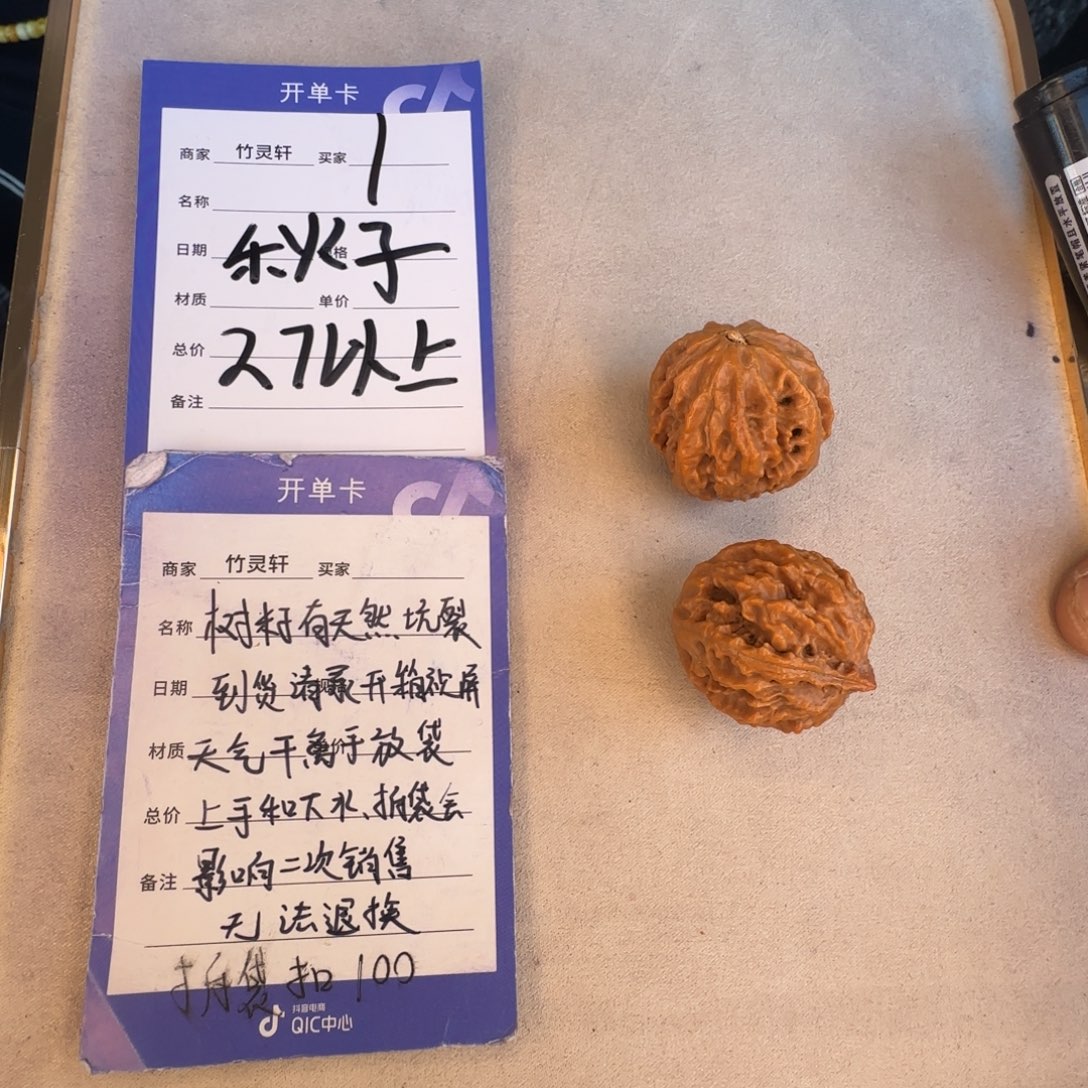 开单卡
商家 竹灵轩 买家 1
名称
日期 秋子
材质 单价
总价 27以上
备注
开单卡
商家 竹灵轩 买家
名称 树籽有天然坑裂
日期 到货请录开箱视屏
材质 天气干离手放袋
总价 上手和下水、拆袋会
备注 影响二次销售
无法退换
拆袋扣100
抖音电商
QIC中心